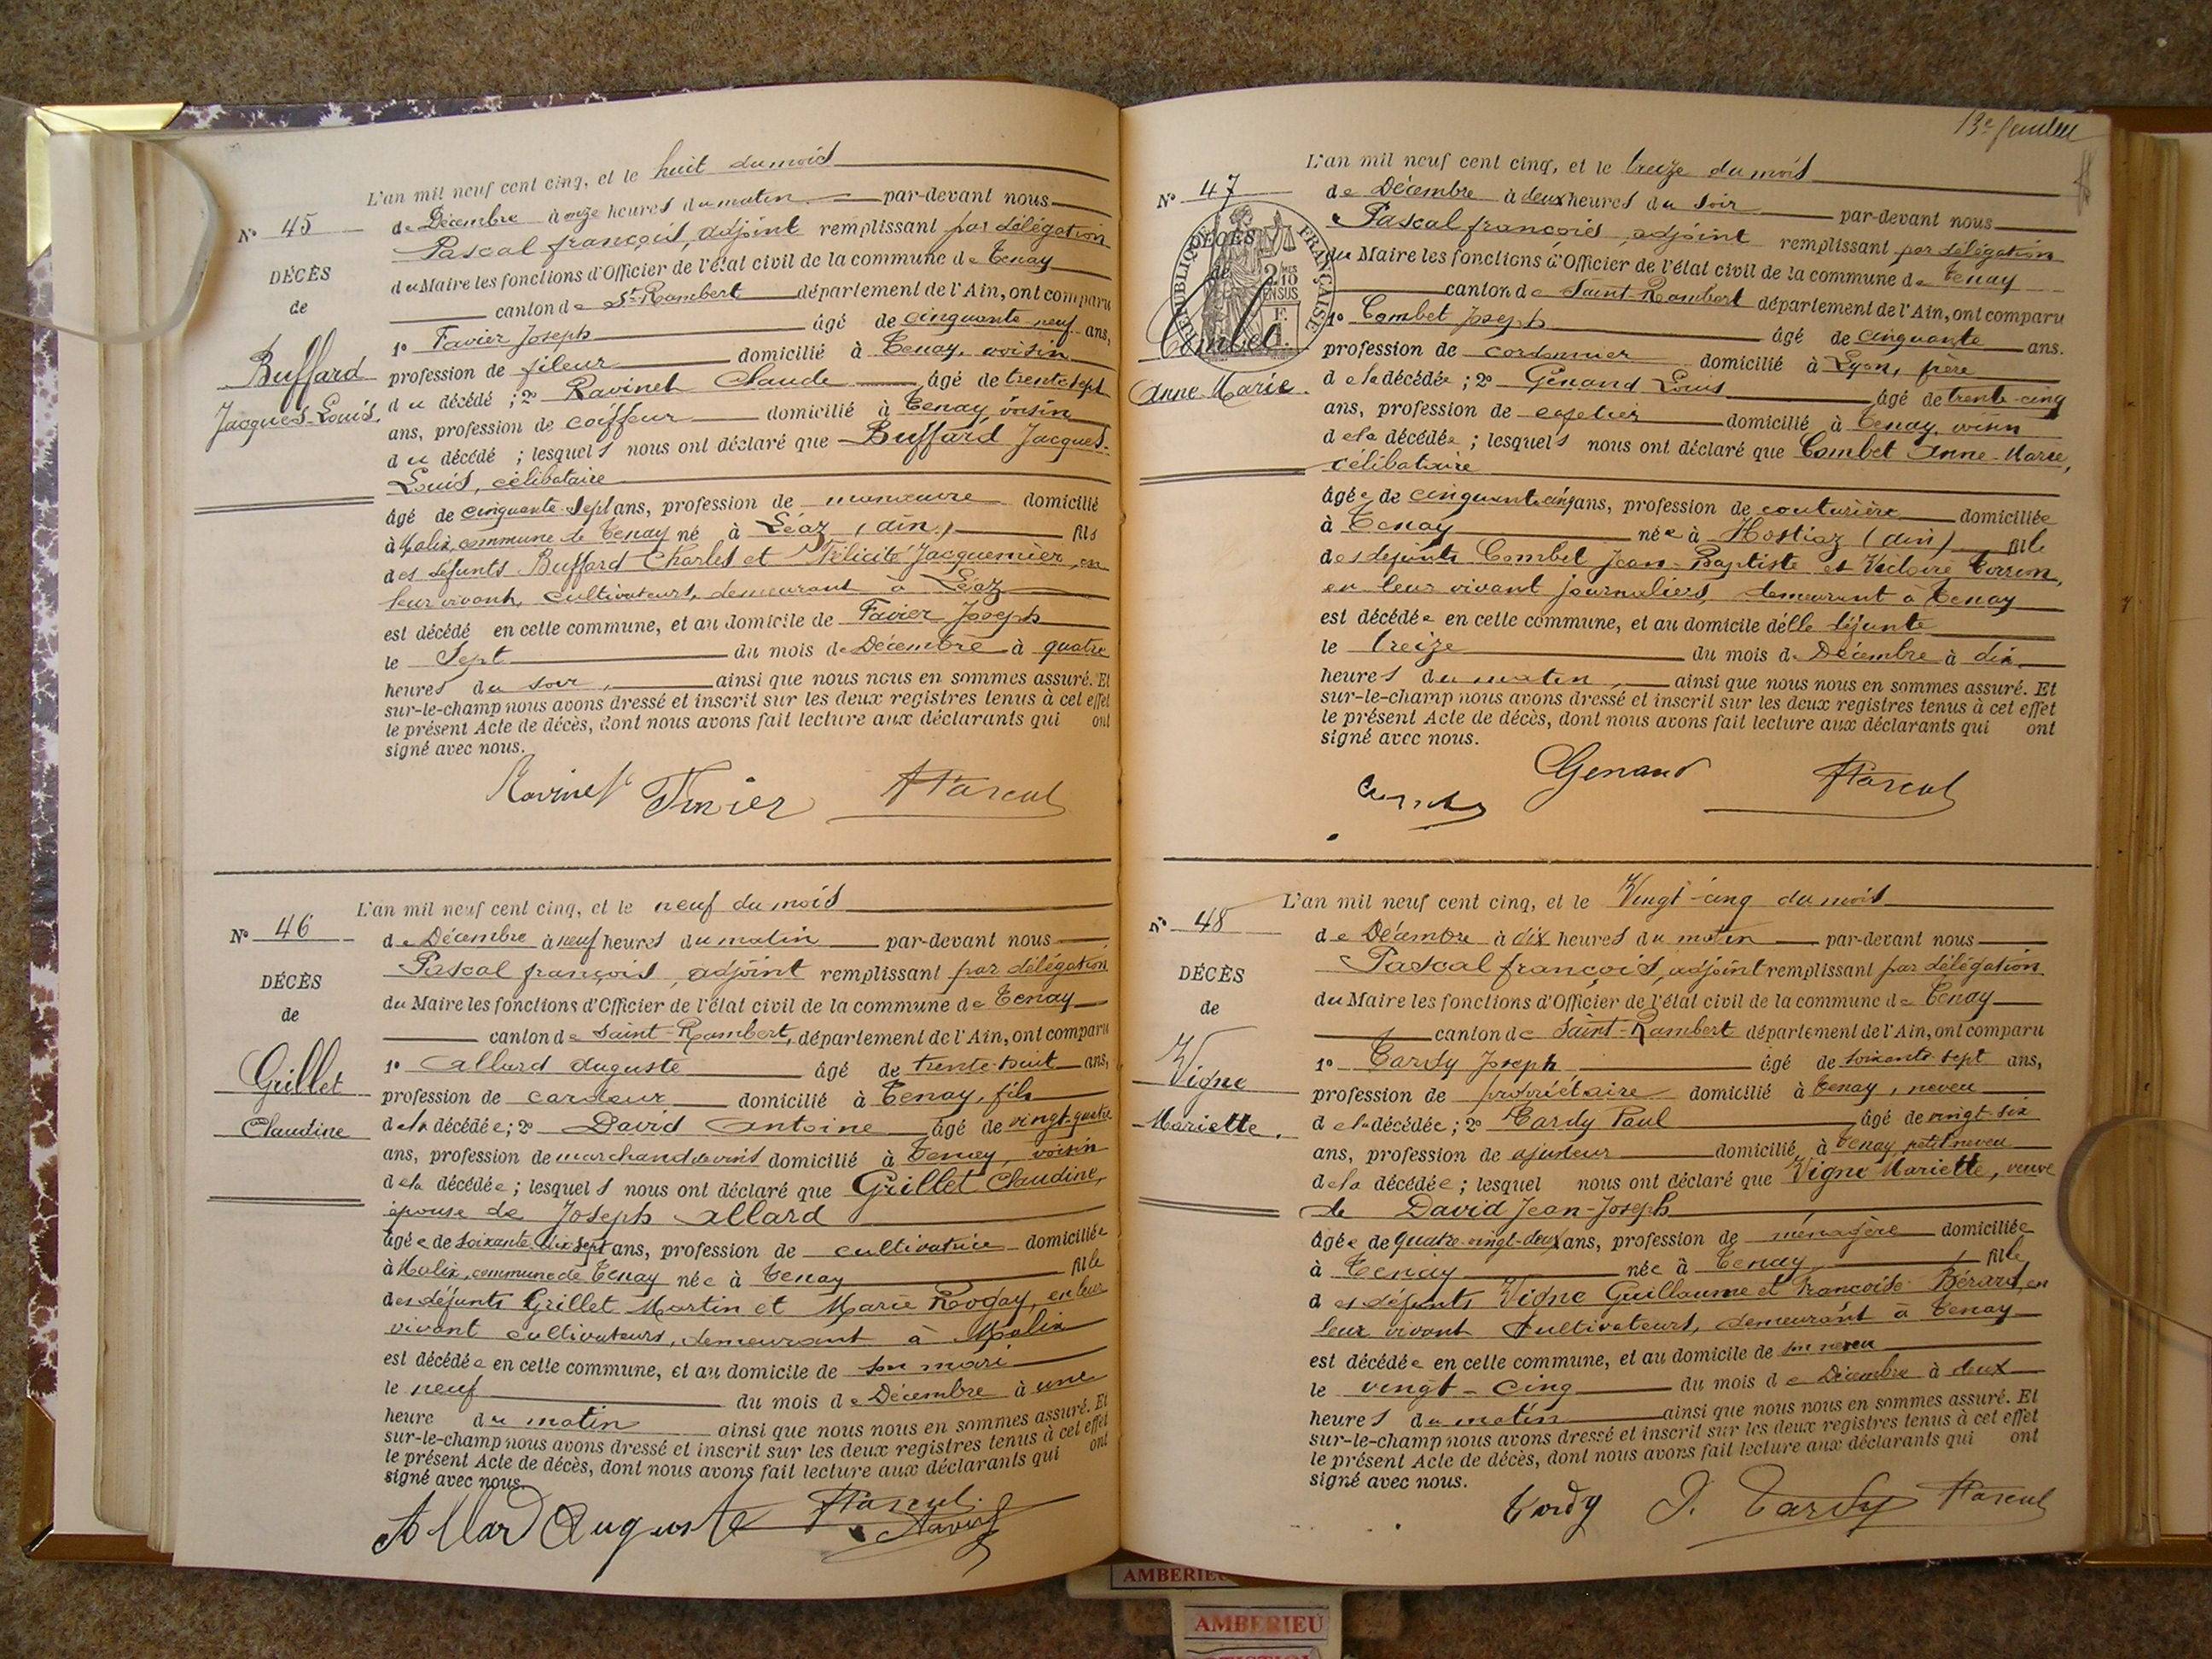 L'an mil neuf cent cinq, et le huit du mois
de Décembre à onze heures du matin par-devant nous
Nº 45
Pascal françois, adjoint remplissant par délégation
DÉCÈS
du Maire les fonctions d'Officier de l'état civil de la commune de Tenay
de
canton de St-Rambert département de l'Ain, ont comparu
1º Favier Joseph âgé de cinquante-neuf ans,
Buffard
profession de fileur domicilié à Tenay, voisin
Jacques-Louis.
du décédé ; 2º Ravinet Claude âgé de trente sept
ans, profession de coiffeur domicilié à Tenay, voisin
du décédé ; lesquels nous ont déclaré que Buffard Jacques-
Louis, célibataire
âgé de cinquante-sept ans, profession de manœuvre domicilié
à Malix, commune de Tenay né à Léaz (ain) fils
des défunts Buffard Charles et Félicité Jacquemier, en
leur vivant, cultivateurs, demeurant à Léaz
est décédé en cette commune, et au domicile de Favier Joseph
le Sept du mois de Décembre à quatre
heures du soir, ainsi que nous nous en sommes assuré. Et
sur-le-champ nous avons dressé et inscrit sur les deux registres tenus à cet effet
le présent Acte de décès, dont nous avons fait lecture aux déclarants qui ont
signé avec nous.
Ravinet Favier Pascal
L'an mil neuf cent cinq, et le neuf du mois
Nº 46
de Décembre à neuf heures du matin par-devant nous
Pascal françois, adjoint remplissant par délégation
DÉCÈS
du Maire les fonctions d'Officier de l'état civil de la commune de Tenay
de
canton de Saint-Rambert, département de l'Ain, ont comparu
1º Allard Auguste âgé de trente-huit ans,
Grillet
profession de cardeur domicilié à Tenay, fils
Claudine
de la décédée ; 2º David Antoine âgé de vingt-quatre
ans, profession de marchand de vins domicilié à Tenay, voisin
de la décédée ; lesquels nous ont déclaré que Grillet Claudine,
épouse de Joseph Allard
âgée de soixante-dix sept ans, profession de cultivatrice domiciliée
à Malix, commune de Tenay née à Tenay fille
des défunts Grillet Martin et Marie Rogay, en leur
vivant cultivateurs, demeurant à Malix
est décédée en cette commune, et au domicile de son mari
le neuf du mois de Décembre à une
heure du matin ainsi que nous nous en sommes assuré. Et
sur-le-champ nous avons dressé et inscrit sur les deux registres tenus à cet effet
le présent Acte de décès, dont nous avons fait lecture aux déclarants qui ont
signé avec nous.
Allard Auguste Pascal
David
13e feuillet
L'an mil neuf cent cinq, et le treize du mois
Nº 47
de Décembre à deux heures du soir par-devant nous
Pascal françois, adjoint remplissant par délégation
DÉCÈS
RÉPUBLIQUE FRANÇAISE
du Maire les fonctions d'Officier de l'état civil de la commune de Tenay
de
canton de Saint-Rambert département de l'Ain, ont comparu
1º Combet Joseph âgé de cinquante ans.
Combet
profession de cordonnier domicilié à Lyon, frère
Anne-Marie.
de la décédée ; 2º Génand Louis âgé de trente-cinq
ans, profession de cafetier domicilié à Tenay, voisin
de la décédée ; lesquels nous ont déclaré que Combet Anne-Marie,
célibataire
âgée de cinquante-cinq ans, profession de couturière domiciliée
à Tenay née à Hostiaz (ain) fille
des défunts Combet Jean-Baptiste et Victoire
en leur vivant journaliers, demeurant à Tenay
est décédée en cette commune, et au domicile délle défunte
le treize du mois de Décembre à dix
heures du matin, ainsi que nous nous en sommes assuré. Et
sur-le-champ nous avons dressé et inscrit sur les deux registres tenus à cet effet
le présent Acte de décès, dont nous avons fait lecture aux déclarants qui ont
signé avec nous.
Genand Pascal
L'an mil neuf cent cinq, et le Vingt-cinq du mois
Nº 48
de Décembre à dix heures du matin par-devant nous
Pascal françois, adjoint remplissant par délégation
DÉCÈS
du Maire les fonctions d'Officier de l'état civil de la commune de Tenay
de
canton de Saint-Rambert département de l'Ain, ont comparu
1º Tardy Joseph âgé de soixante-sept ans,
Vigne
profession de propriétaire domicilié à Tenay, neveu
Mariette.
de la décédée ; 2º Tardy Paul âgé de vingt-six
ans, profession de ajusteur domicilié à Tenay, petit neveu
de la décédée ; lesquel nous ont déclaré que Vigne Mariette, veuve
de David Jean-Joseph
âgée de quatre-vingt-deux ans, profession de ménagère domiciliée
à Tenay née à Tenay, fille
des défunts Vigne Guillaume et françoise Bérard, en
leur vivant cultivateurs, demeurant à Tenay
est décédée en cette commune, et au domicile de son neveu
le vingt-cinq du mois de Décembre à deux
heures du matin ainsi que nous nous en sommes assuré. Et
sur-le-champ nous avons dressé et inscrit sur les deux registres tenus à cet effet
le présent Acte de décès, dont nous avons fait lecture aux déclarants qui ont
signé avec nous.
Tardy J. Tardy Pascal
AMBERIEU
AMBERIEU